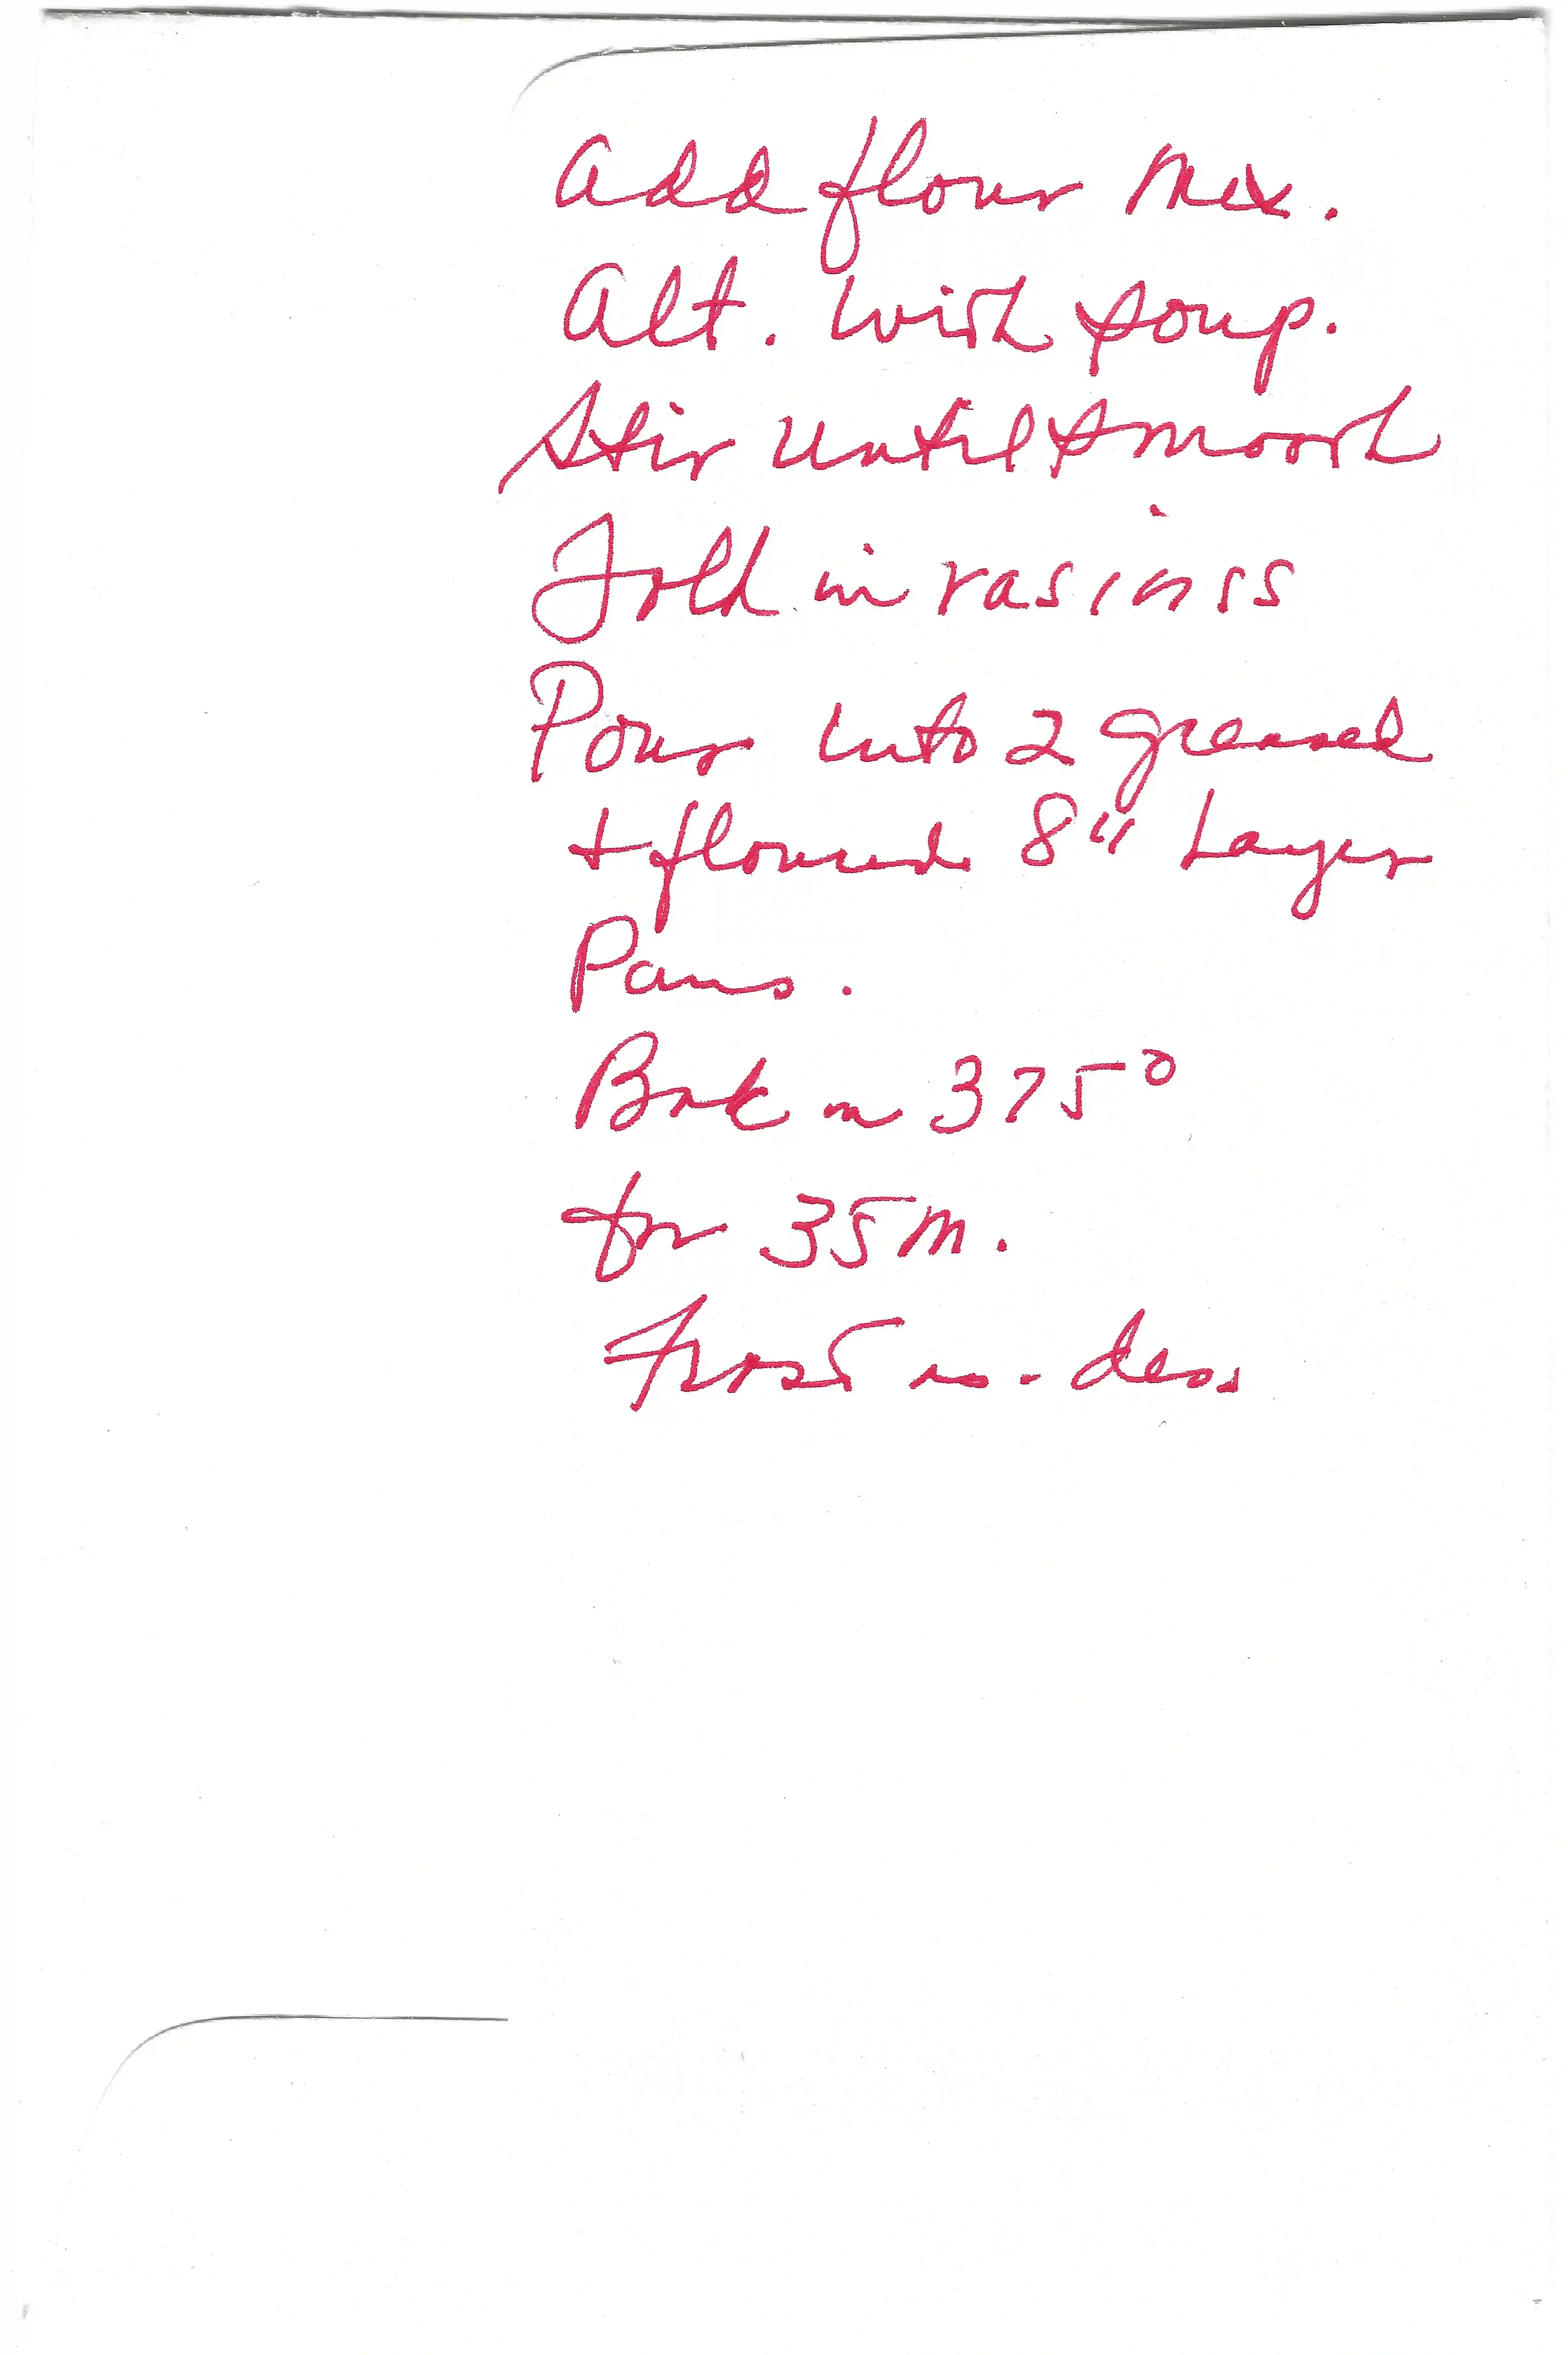 Add flour mix.
Alt. with soup.
Stir until smooth
Fold in rasinss
Pour into 2 greased
+ floured 8" Layer
Pans.
Bak in 375°
for 35 m.
Frost as. des.